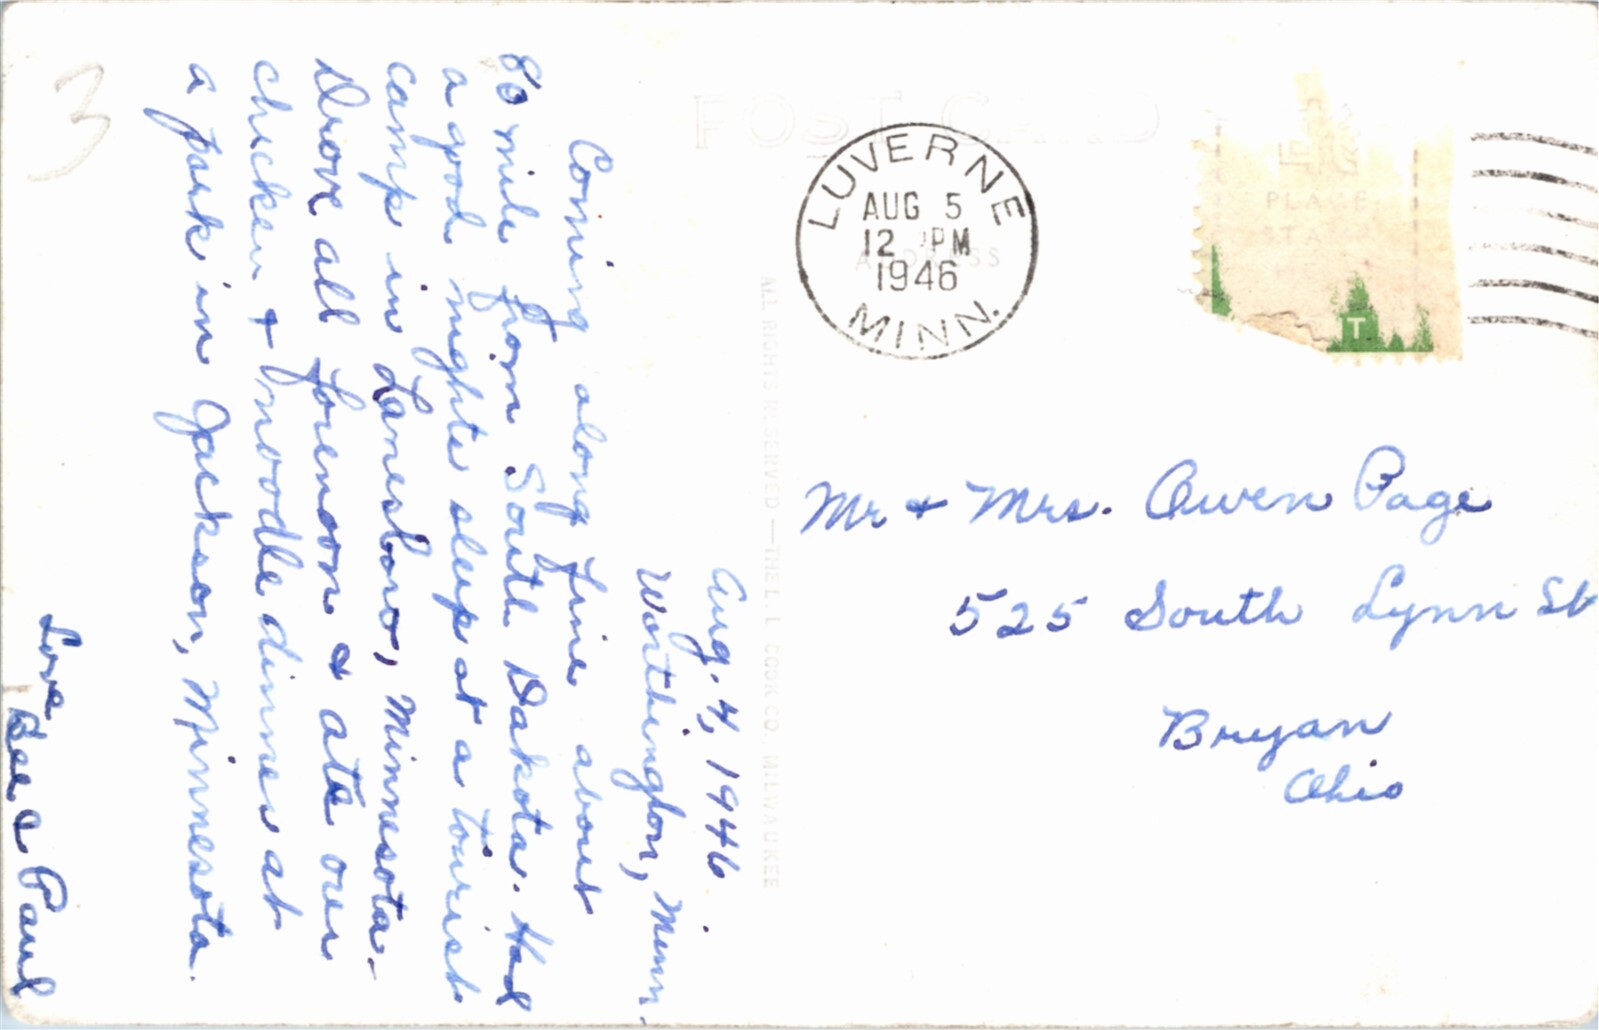 Aug. 4, 1946.
Worthington, Minn.
Coming along fine about
80 mile from South Dakota. Had
a good nights sleep at a tourist
camp in Lanesboro, Minnesota.
Drove all forenoon & ate our
chicken & noodle dinner at
a park in Jackson, Minnesota.
Love
Bee & Paul
3
POST CARD
ADDRESS
PLACE
STAMP
HERE
LUVERNE
AUG 5
12 PM
1946
MINN.
IT
ALL RIGHTS RESERVED — THE L. L. COOK CO., MILWAUKEE
Mr & Mrs. Owen Page
525 South Lynn St
Bryan
Ohio